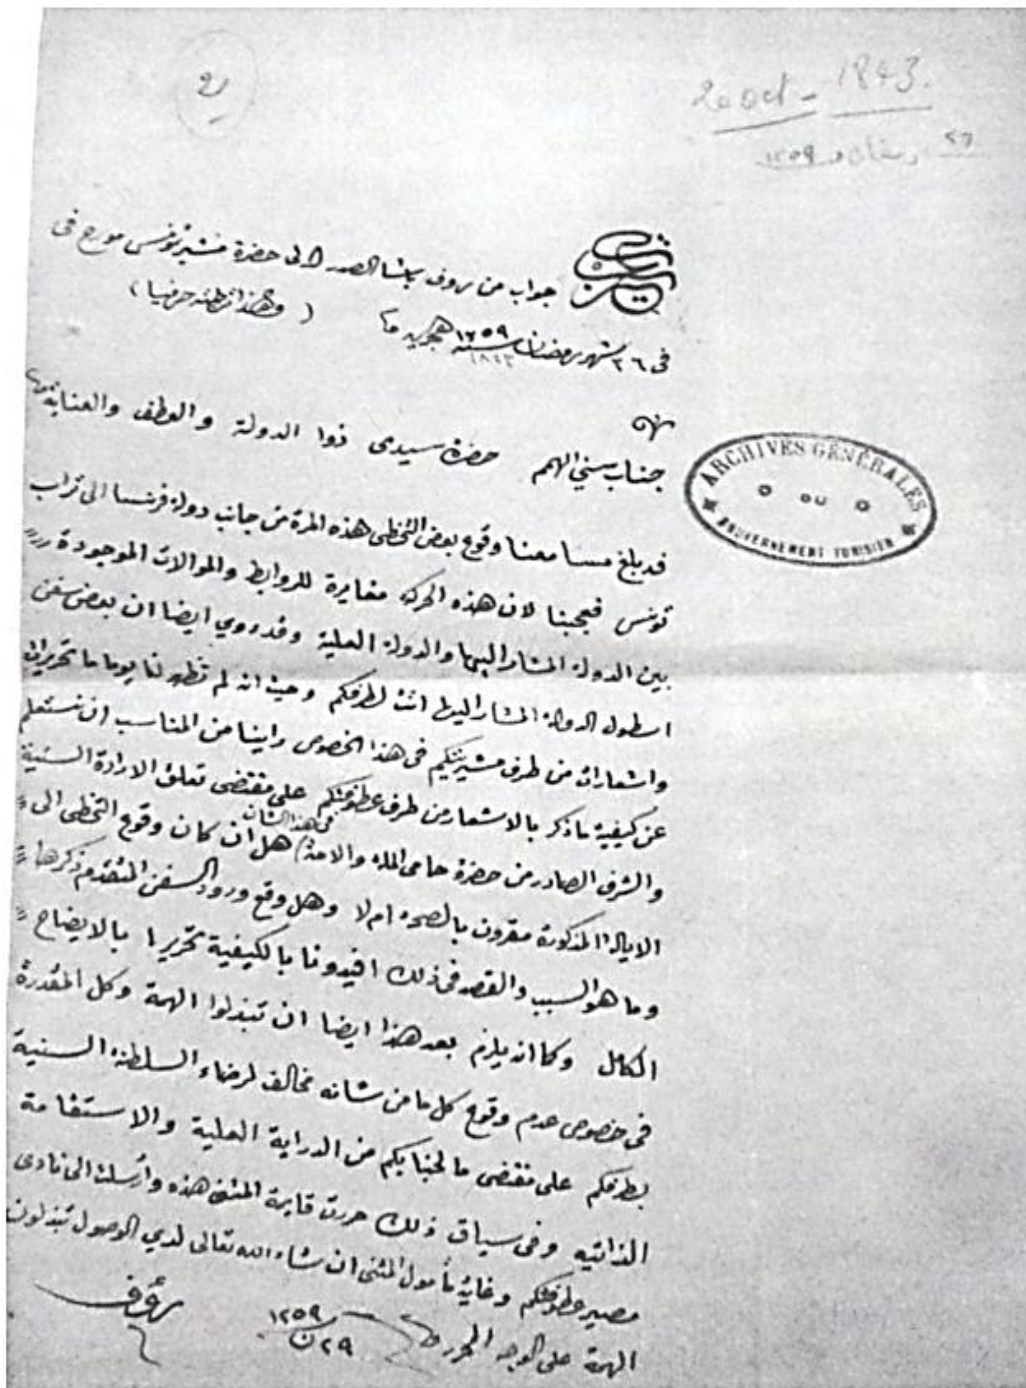 2
20 oct - 1843.
٢٦ رمضان 1259
جواب من رءوف باشا الصدر الى حضرة مشير تونس مورخ فى
فى ٢٦ شهر رمضان سنة ١٢٥٩ هجريه
١٨٤٣
جناب سني الهمم حضرة سيدى ذوا الدولة والعطف والعناية
قد بلغ مسامعنا وقوع بعض التخطى هذه المرة من جانب دولة فرنسا الى تراب
تونس فعجبنا لان هذه الحركة مغايرة للروابط والموالات الموجودة
بين الدولة المشار اليها والدولة العلية وقد روي ايضا ان بعض سفن
اسطول الدولة المشار اليها اتت لطرفكم وحيث انه لم تظهر لنا يوما ما تحريرات
واشعارات من طرف مشيريتكم فى هذا الخصوص راينا من المناسب ان نستعلم
عن كيفية ما ذكر بالاشعار من طرف عطوفتكم على مقتضى تعلق الارادة السنية
والشرف الصادر من حضرة حامى الملة والامة فى هذا الشان هل ان كان وقوع التخطى الى
الايالة المذكورة مقرون بالصحه ام لا وهل وقع ورود السفن المتقدم ذكرها
وما هو السبب والقصد فى ذلك افيدونا بالكيفية تحريرا بالايضاح
الكامل وكما انه يلزم بعد هذا ايضا ان تبذلوا الهمة وكل المقدرة
فى خصوص عدم وقوع كل ما من شانه مخالف لرضاء السلطنة السنية
بطرفكم على مقتضى ما لجنابكم من الدراية العلية والاستقامة
الذاتيه وفى سياق ذلك حررت قايمة المثنى هذه وأرسلت الى نادى
مصير عطوفتكم وغاية مأمول المثنى ان شاء الله تعالى لدي الوصول تبذلون
الهمة على الوجه المحرر
١٢٥٩
ن ٢٩
رءوف
ARCHIVES GÉNÉRALES
DU
GOUVERNEMENT TUNISIEN